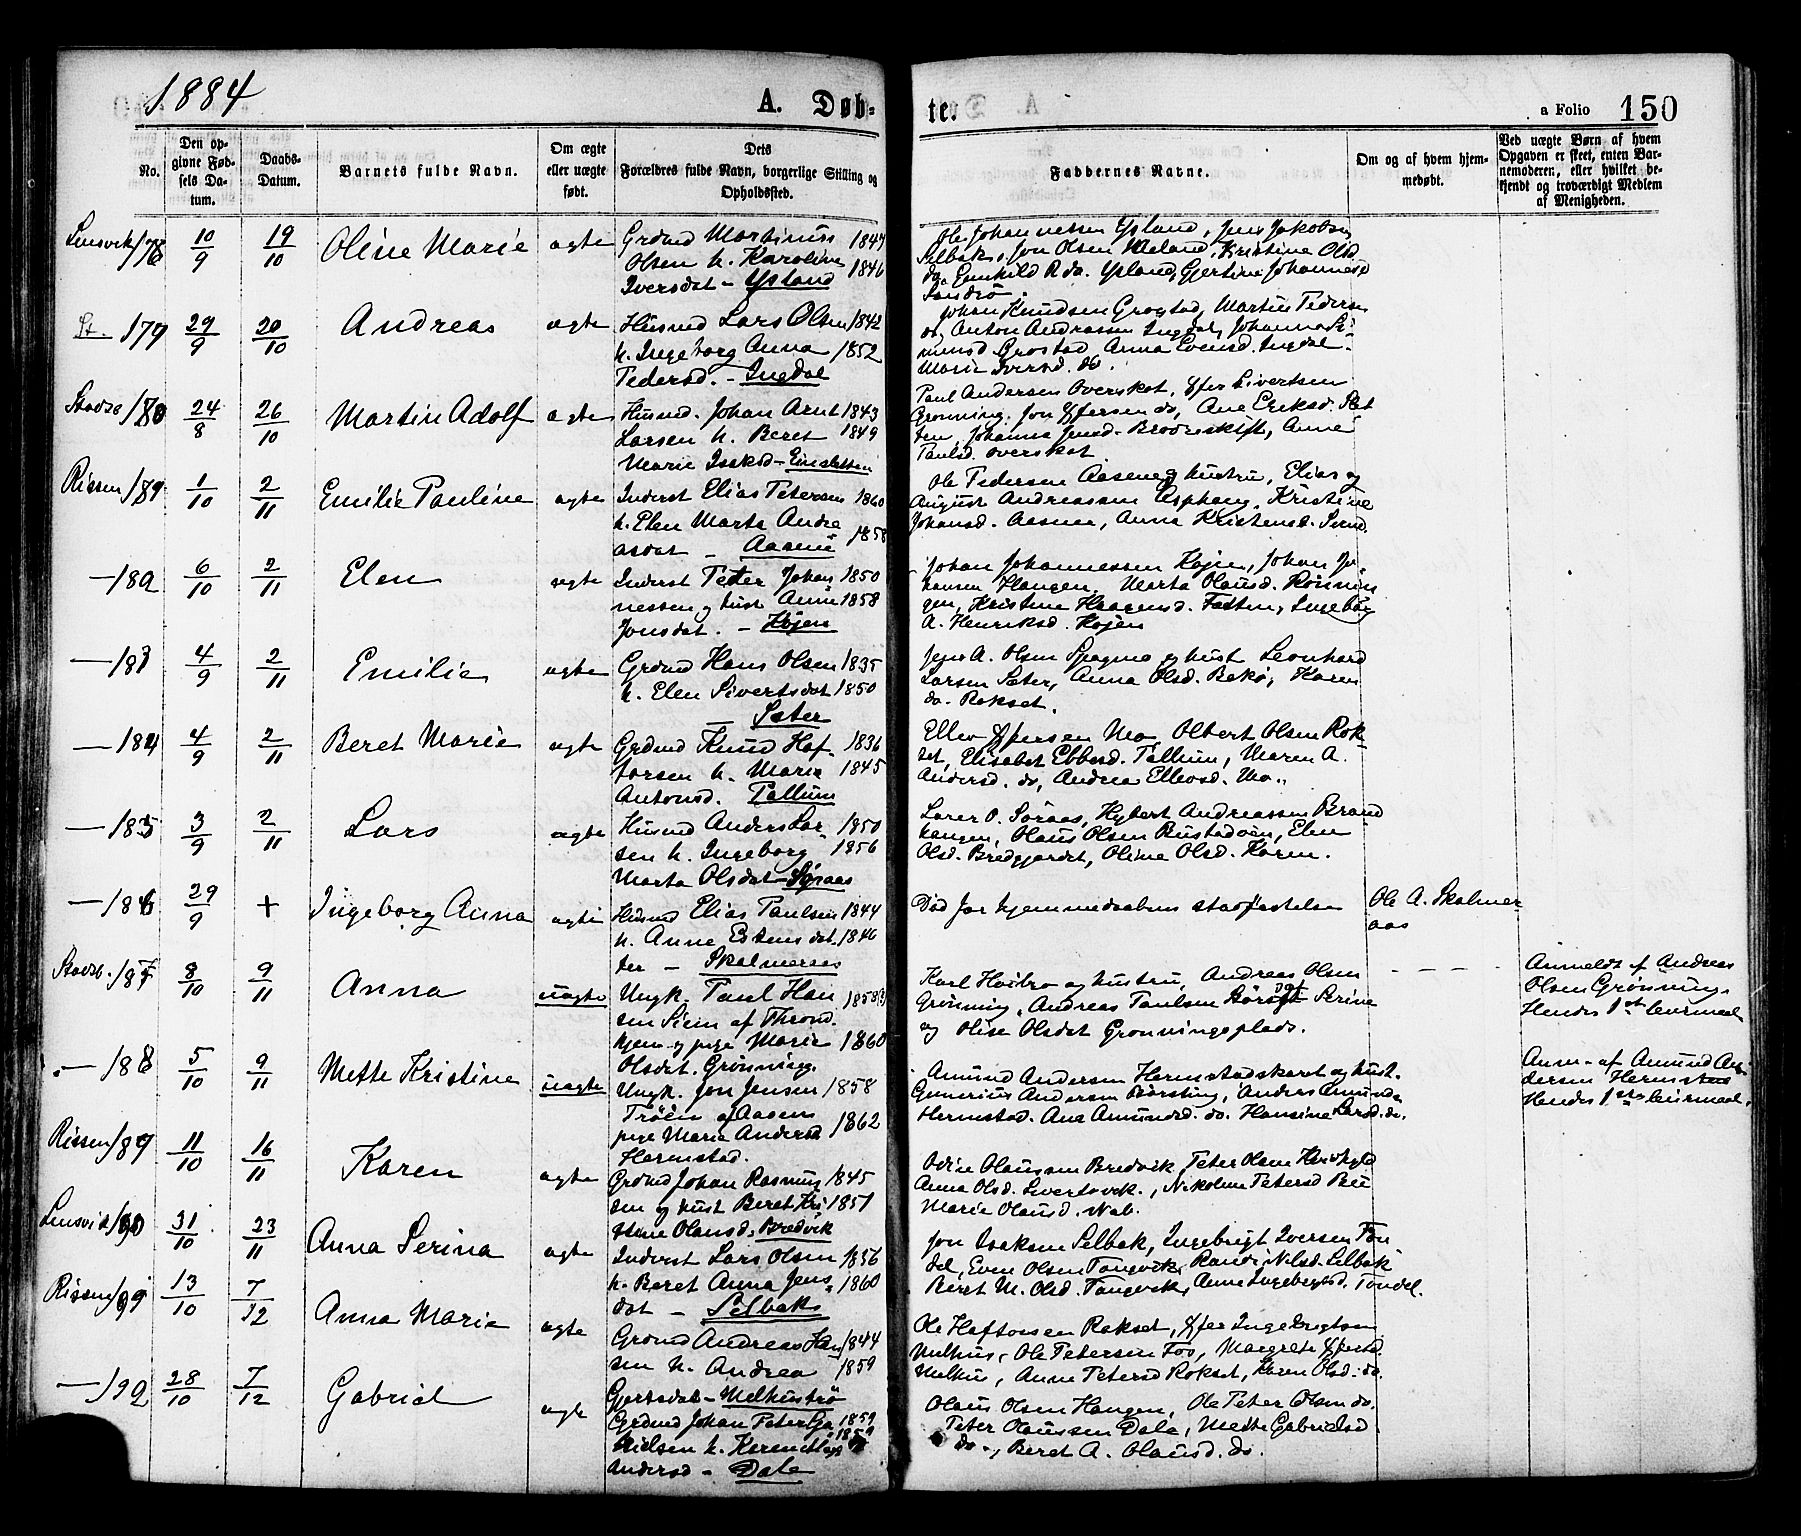 1884
A. Døb-
te.
a Folio 150
No.
Den op-
givne Fød-
sels Da-
tum.
Daabs-
Datum.
Barnets fulde Navn.
Om ægte
eller uægte
født.
Dets
Forældres fulde Navn, borgerlige Stilling og
Opholdssted.
Faddernes Navne.
Om og af hvem hjem-
medøbt.
Ved uægte Børn af hvem
Opgaven er skeet, enten Bar-
nemoderen, eller hvilket be-
kjendt og troværdigt Medlem
af Menigheden.
Lensvik 178 10/9 19/10 Oline Marie ægte
Grdmd Martinus 1847
Olsen h. Karoline 1846
Iversdat - Ysland
Ole Johannessen Ysland, Jens Jakobsen
Selbæk, Jon Olsen Kristine Olsd
do, Ysland, Gjertine Johannesd
St. 179 29/9 20/10 Andreas ægte
Husmd Lars Olsen 1842
h. Ingeborg Anna 1852
Pedersd. - Ingdal
Johan Knudsen Grostad, Martin Pedersen
do, Anton Andreassen Ingdal, Johanna Si-
monsd Grostad Anna Evensd. Ingdal
Marie Iversd. do.
Stadsb. 180 24/8 26/10 Martin Adolf ægte
Husmd. Johan Arnt 1843
Larsen h. Beret 1849
Marie Isaksd -
Paul Andersen Overskot, Effer Sivertsen
Grønning, Jon Effersen do, Ane Eriksd. Slet
ten, Johanna Jensd. Anne
Paulsd. Overskot
Rissen 181 1/10 2/11 Emilie Pauline ægte
Inderst Elias Petersen 1860
h. Elen Marta Andre 1858
asdat - Aasene
Ole Pedersen Aasene og hustru, Elias og
August Andreassen Kristine
Johansd. Aasene, Anna Kristensd.
— 182 6/10 2/11 Elen ægte
Inderst Peter Johan 1850
nessen og hust Anne 1858
Jonsdat. - Højen
Johan Johannessen Højen, Johan Jo-
hansen Haugen, Marta Olausd. Rønnin
gen, Kristine Haagensd. Fatten, Ingeborg
A. Henriksd. Højen
— 183 4/9 2/11 Emilie ægte
Grdmd Hans Olsen 1835
h. Elen Sivertsdat 1850
— Sæter
A. Olsen og hust Leonhard
Larsen Sæter, Anna Olsd. Rekø, Karen
do. Rokset.
— 184 4/9 2/11 Beret Marie ægte
Grdmd Knud Haf- 1836
torsen h. Maria 1845
Antonsd. Pallum
Ellev Effersen Mo, Olbert Olsen Rok-
set, Elisabet Ebbesd. Pallum, Maren A.
Andersd. do, Andrea Ellevsd. Mo.
— 185 3/9 2/11 Lars ægte
Husmd Anders Lar- 1850
sen h. Ingeborg 1856
Marta Olsdat - Søraas
Larer O. Søraas, Hybert Andreassen Brand
haugen, Olaus Olsen Elen
Olsd. Bredgjerdet, Oline Olsd. Karen.
— 186 29/9 + Ingeborg Anna ægte
Husmd Elias Paulsen 1844
h. Anne Estensdat 1846
ter - Skalmeraas
Død før hjemmedaabens stadfæstelse
Ole A. Skalmer-
aas
Stadsb. 187 8/10 9/11 Anna uægte
Ungk. Paul Han 1858
sen Siem af Thrond.
hjem og pige Marie 1860
Olsdat. Grønning
Karl og hustru, Andreas Olsen
Grønning, Andreas Paulsen Serine
og Olise Olsdat Grønningsplads.
Anmeldt af Andreas
Olsen Grønning.
Hendes 1st leiermaal
— 188 5/10 9/11 Mette Kristine uægte
Ungk. Jon Jensen 1858
Trøen af Aasens
pige Marie Andersd 1862
Hermstad.
Amund Andersen Hermstadskaret og hust.
Gunerius Andersen Børsting, Anders Amunds
Hermstad, Ane Amundsd. do. Hansine Larsd. do.
Anm- af Amund An-
dersen Hermstad
Hendes 1ste leiermaal.
Rissen 189 11/10 16/11 Karen ægte
Grdmd Johan Rasmus 1845
sen og hust Beret Kri 1851
stine Olausd. Bredvik
Odin Olaussen Bredvik Peter Olsen
Anna Olsd. Sivertsvik., Nikoline Petersd
Marie Olausd. Nab.
Lensvik 190 31/10 23/11 Anna Serina ægte
Inderst Lars Olsen 1856
h. Beret Anna Jens 1860
dat - Selbæk
Jon Isaksen Selbæk, Ingebrigt Iversen Ton
del, Even Olsen Tangvik, Randi Nilsd. Selbæk
Beret M. Olsd. Tangvik, Anne Ingebrigtsd. Tondel.
Rissen 191 13/10 7/12 Anna Marie ægte
Grdmd Andreas Han 1844
sen h. Andrea 1859
Gjertsdat - Melhustrø
Ole Haftorsen Rokset, Effer Ingebrigtsen
Melhus, Ole Petersen Fos, Margrete Effersd.
Melhus, Anne Petersd Rokset, Karen Olsd. do.
— 192 28/10 7/12 Gabriel ægte
Grdmd Johan Peter Ga 1859
brielsen h.
Andersd - Dale
Olaus Olsen Haugen, Ole Peter Olsen do.
Peter Olaussen Dale, Mette Gabrielsd
do., Beret A. Olausd. do.